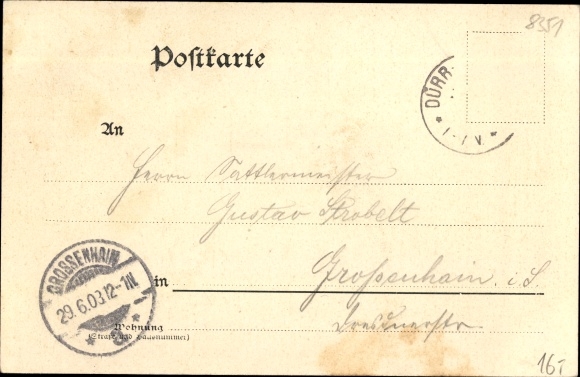 8351
Postkarte
DÜRR
1-1 N.
An
Herrn Sattlermeister
Gustav Strobelt
in Großenhain i. S.
GROSSENHAIN
29.6.03 12-1N.
Wohnung
(Straße und Hausnummer)
Dresdnerstr
16,-